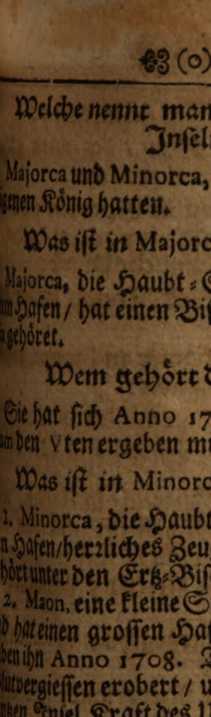 (o)
Welche nennt man
Insel
Majorca und Minorca,
König hatten.
Was ist in Majorc
Majorca, die Haubt-
Hafen / hat einen Bis
gehöret.
Wem gehört d
Sie hat sich Anno 17
den Vten ergeben
Was ist in Minorc
1. Minorca, die Haubt
Hafen / herrliches Zeu
unter den Ertz-Bis
2. Maon, eine kleine S
hat einen grossen Ha
ihn Anno 1708.
vergiessen erobert / u
Insel Krafft des